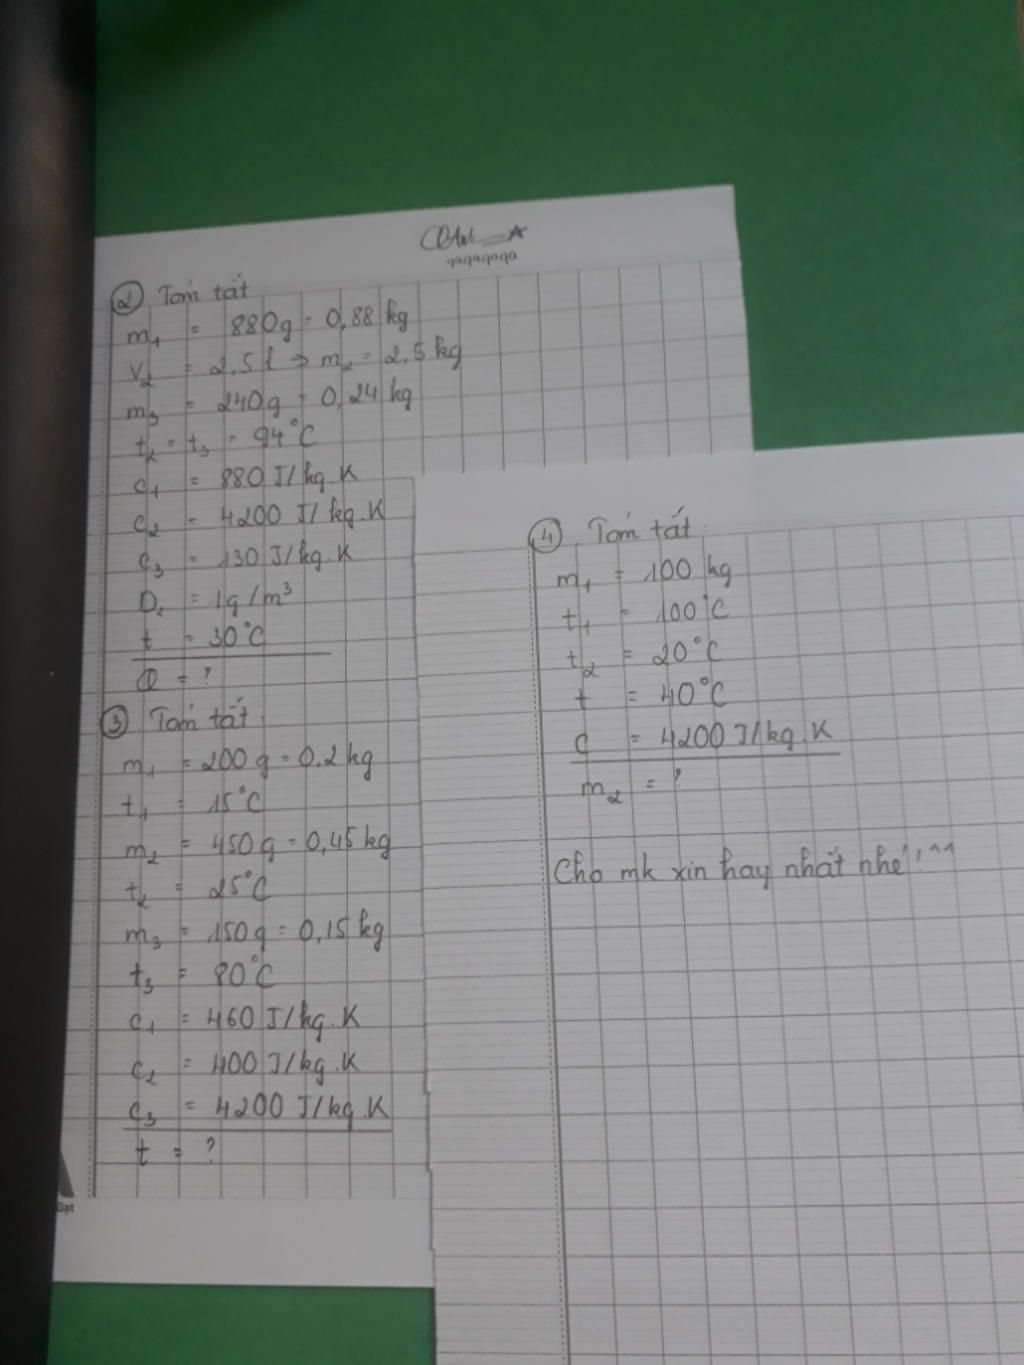 qaqaqaqa
② Tóm tắt
m₁ = 880g = 0,88 kg
V₂ = 2,5 l => m₂ = 2,5 kg
m₃ = 240g = 0,24 kg
t₂ = t₃ = 94°C
c₁ = 880 J/kg.K
c₂ = 4200 J/kg.K
c₃ = 130 J/kg.K
D₂ = 1g/m³
t = 30°C
Q = ?
③ Tóm tắt
m₁ = 200g = 0,2 kg
t₁ = 15°C
m₂ = 450g = 0,45 kg
t₂ = 25°C
m₃ = 150g = 0,15 kg
t₃ = 80°C
c₁ = 460 J/kg.K
c₂ = 400 J/kg.K
c₃ = 4200 J/kg.K
t = ?
Đạt
④ Tóm tắt:
m₁ = 100 kg
t₁ = 100°C
t₂ = 20°C
t = 40°C
c = 4200 J/kg.K
m₂ = ?
Cho mk xin hay nhất nhé! ^^